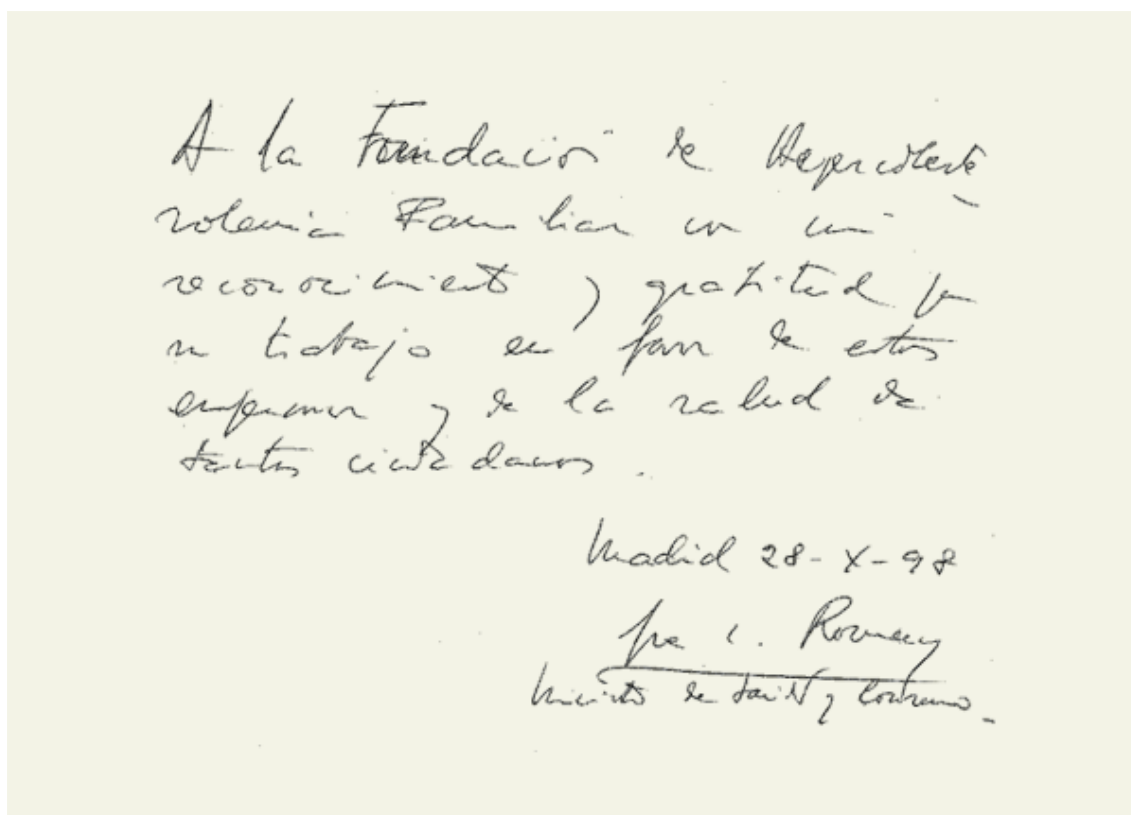 A la Fundación de Hipercoleste-
rolemia Familiar con mi
reconocimiento y gratitud por
su trabajo en favor de estos
enfermos y de la salud de
tantos ciudadanos.
Madrid 28-X-98
José L. Romay
Ministro de Sanidad y Consumo.-